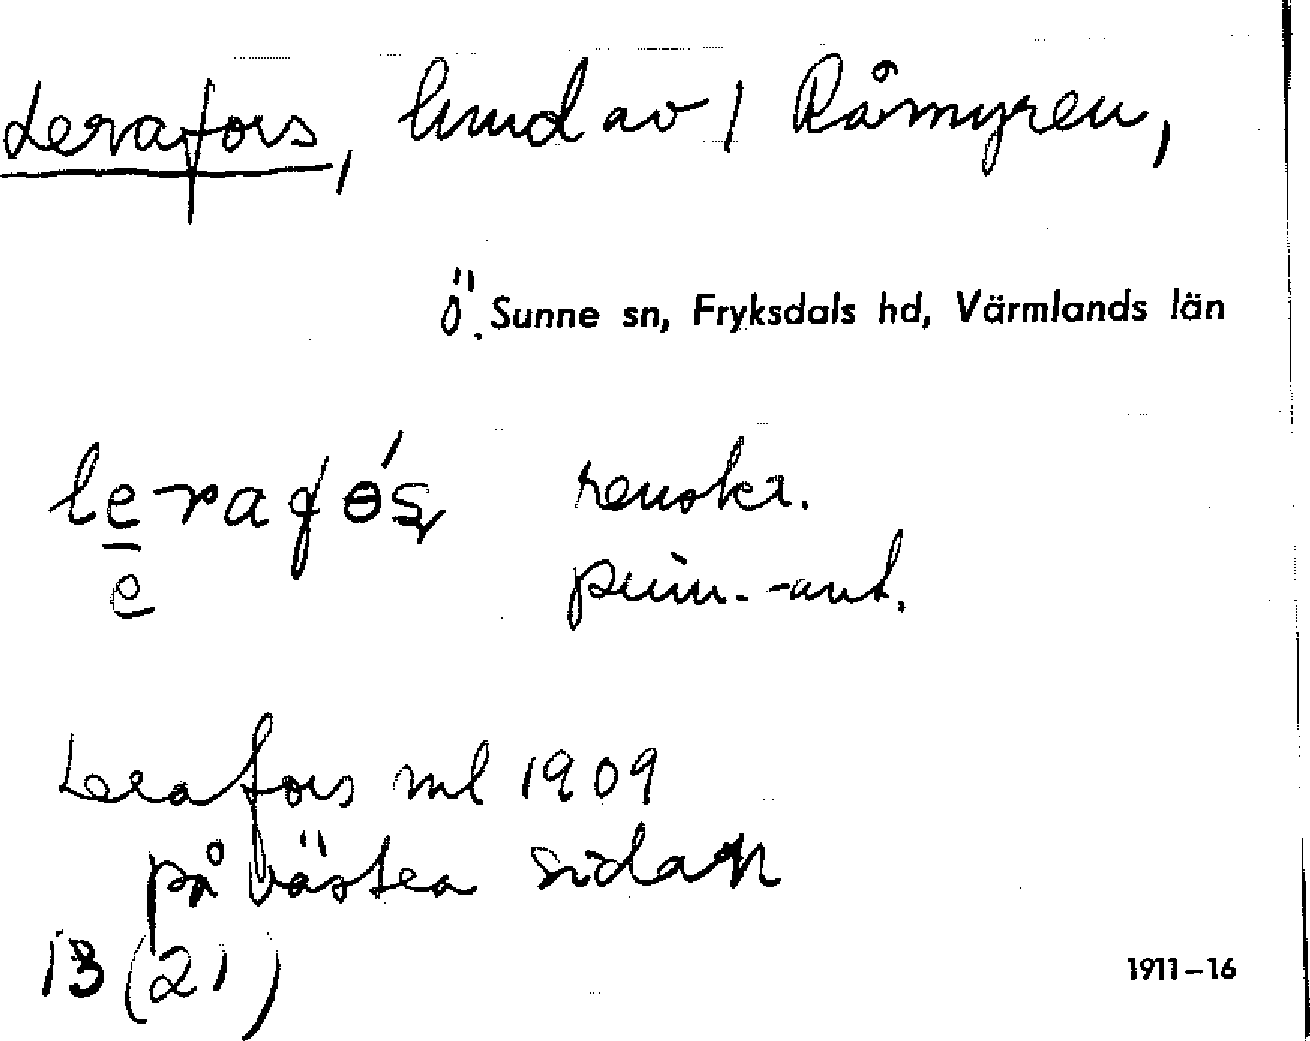 Lerafors, hmd av 1 Råmyren,
Ö. Sunne sn, Fryksdals hd, Värmlands län
lerafɵ́ʂ renskr.
e prim.-ant.
Lerafors ml 1909
på västra sidan
13 (21)
1911-16